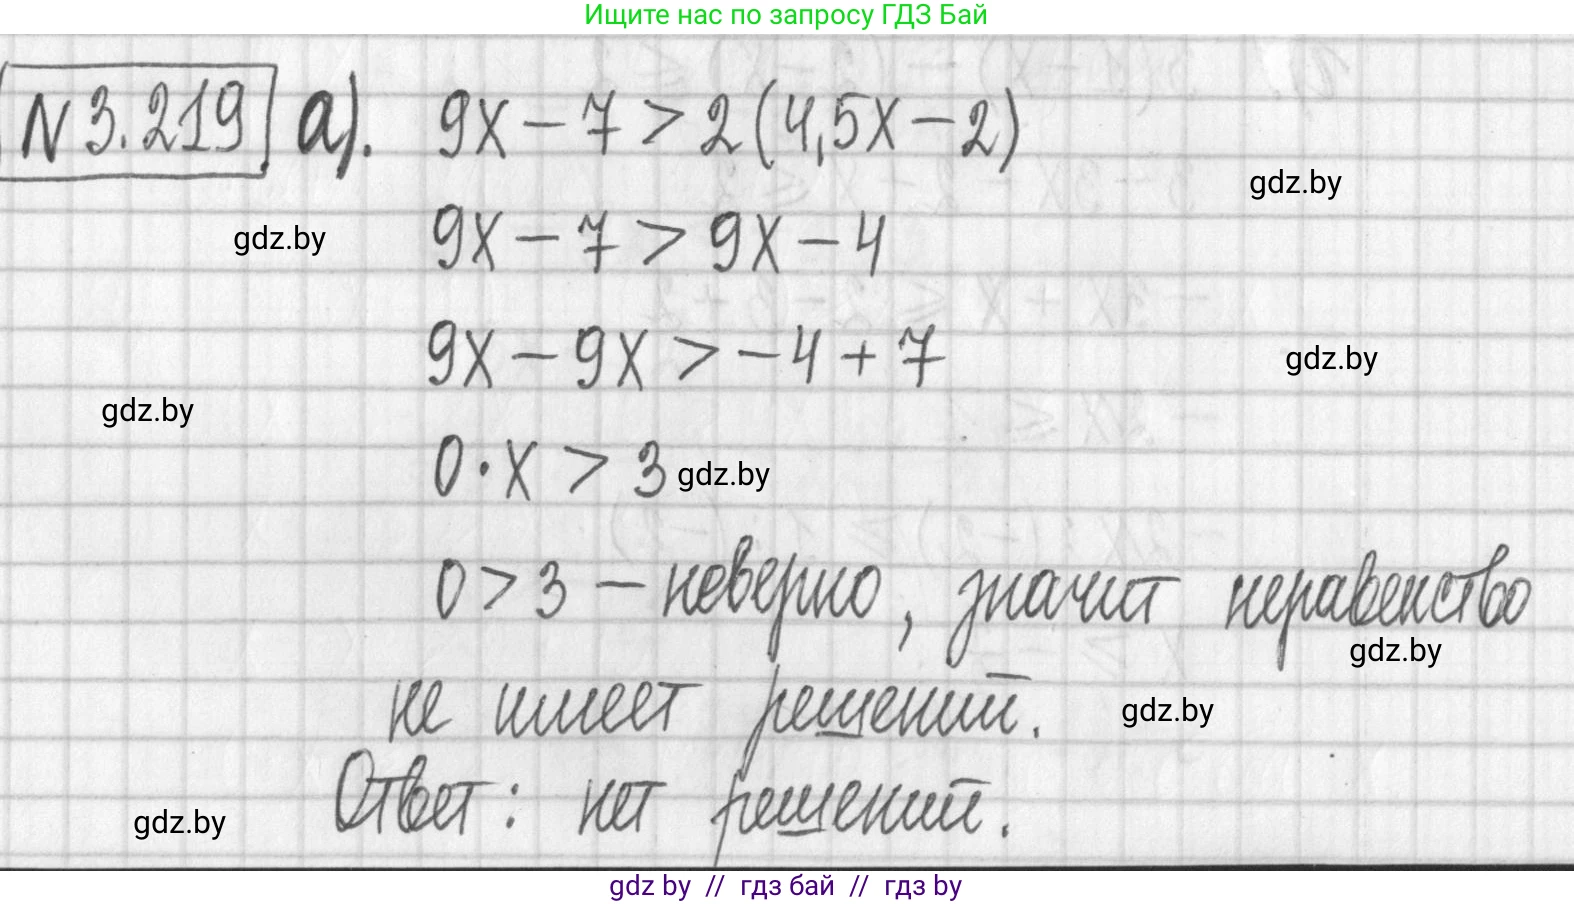 Ищите нас по запросу ГДЗ Бай
N 3.219. а). 9x - 7 > 2(4,5x - 2)
gdz.by
gdz.by
9x - 7 > 9x - 4
9x - 9x > -4 + 7
gdz.by
gdz.by
0 · x > 3
gdz.by
0 > 3 — неверно, значит неравенство
gdz.by
не имеет решений.
gdz.by
Ответ: нет решений.
gdz.by
gdz by // гдз бай // гдз by